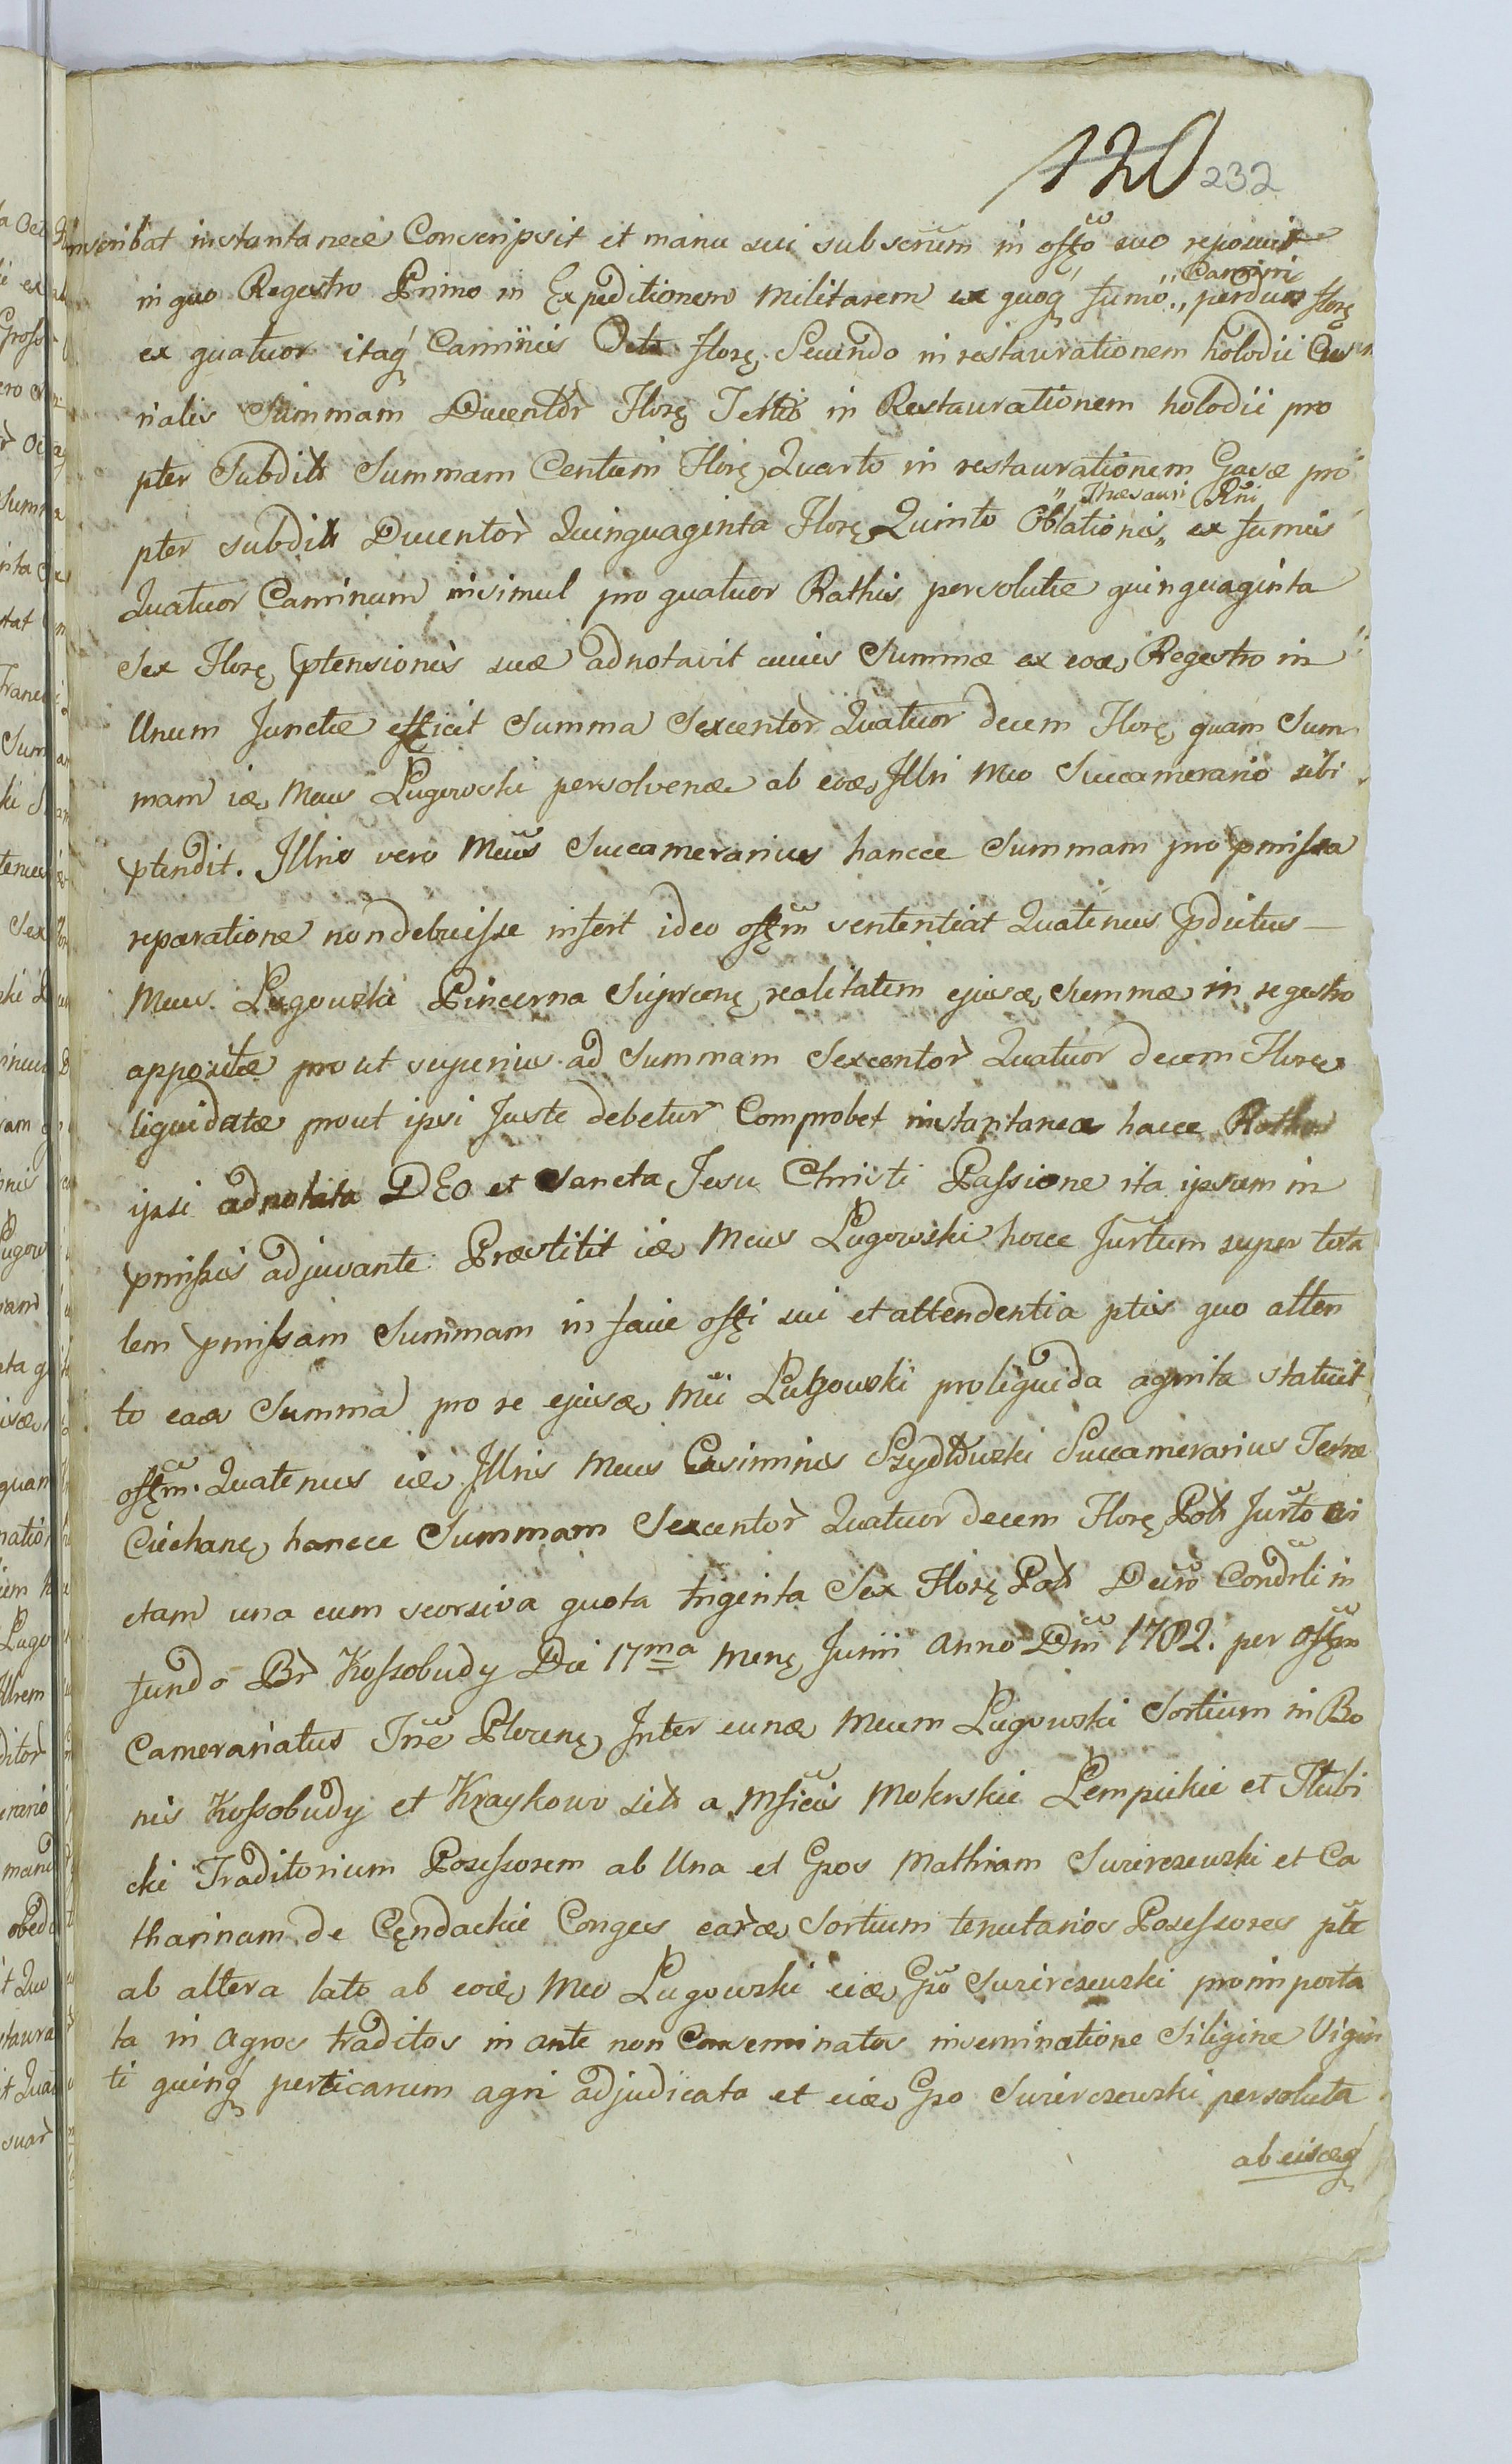 120 232
inscribat instantaneè Conscripsit et manu sui subscrũm in offo suo reposuit
Camini
in quo Regestro Primo in Expeditionem Militarem ex quoq fumo „ per duos Flor
ex quatuor itaq Caminis Octo Flor Secundo in restaurationem holodii
nalis Summam Ducentor Flor Tertio in Restaurationem holodii pro
pter Subdit Summam Centum Flor Quarto in restaurationem Gazæ pro
„ Thesauri Rni
pter subdit Ducentor Quinquaginta Flor Quinto Oblationis „ ex fumis
Quatuor Caminum insimul pro quatuor Rathis persolutæ quinquaginta
Sex Flor ptensionis suæ adnotavit cuius Summæ ex eoæ Regestro in
Unum Junctæ efficit Summa Sexcentor Quatuor decem Flor quam Sum
mam iæ Mcus Lugowski persolvenæ ab eoæ Illri Mco Succamerario sibi
ptendit. Illris vero Mcus Succamerarius hancce Summam pro pmissa
reparatione non debuisse infert ideo offm sententiat Quatenus pdictus —
Mcus Lugowski Pincerna realitatem ejusæ Summæ in regestro
appositæ prout superius ad Summam Sexcentor Quatuor decem Flor
liquidatæ prout ipsi Juste debetur Comprobet instantanea hacce Rotha
ipsi adnotata DEO et Sancta Jesu Christi Passione ita ipsum in
pmissis adjuvante Præstitit iæ Mcus Lugowski hocce Jurtum super tota
lem pmissam Summam in facie offi sui et attendentia ptis quo atten
to eaæ Summa pro re ejusæ Mci Lugowski pro liquida agnita statuit
offm Quatenus iæ Illris Mcus Casimirus Szydłowski Succamerarius Terræ
Ciechan hancce Summam Sexcentor Quatuor decem Flor Pol Jurto
ctam una cum seorsiva quota triginta Sex Flor Pol Decro Condrli in
fundo Br Kossobudy Die 17ma Mens Junii Anno Dni 1782. per offm
Camerariatus Træ Plocens Inter eunæ Mcum Lugowski Sortium in Bo
nis Kossobudy et Kraykowo sit a Mficis Mokrskie Lempickie et Tłubi
ckie Traditorium Possessorem ab Una et Gsos Mathiam Swierczewski et Ca
tharinam de Cendackie Conges earæ Sortium tenutarios Possessores pte
ab altera lato ab eoæ Mco Lugowski eiæ Gso Swierczewski pro importa
ta in Agros traditos in ante non Conseminatos inseminatione Siligine Vigin
ti quinq perticarum agri adjudicata et eiæ Gso Swierczewski persoluta
ab eisæq